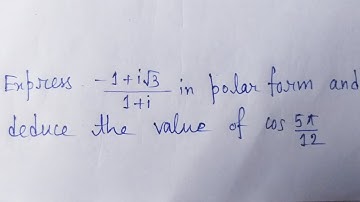 Express (-1+i√3)/(1+i) in polar form and
deduce the value of cos 5π/12